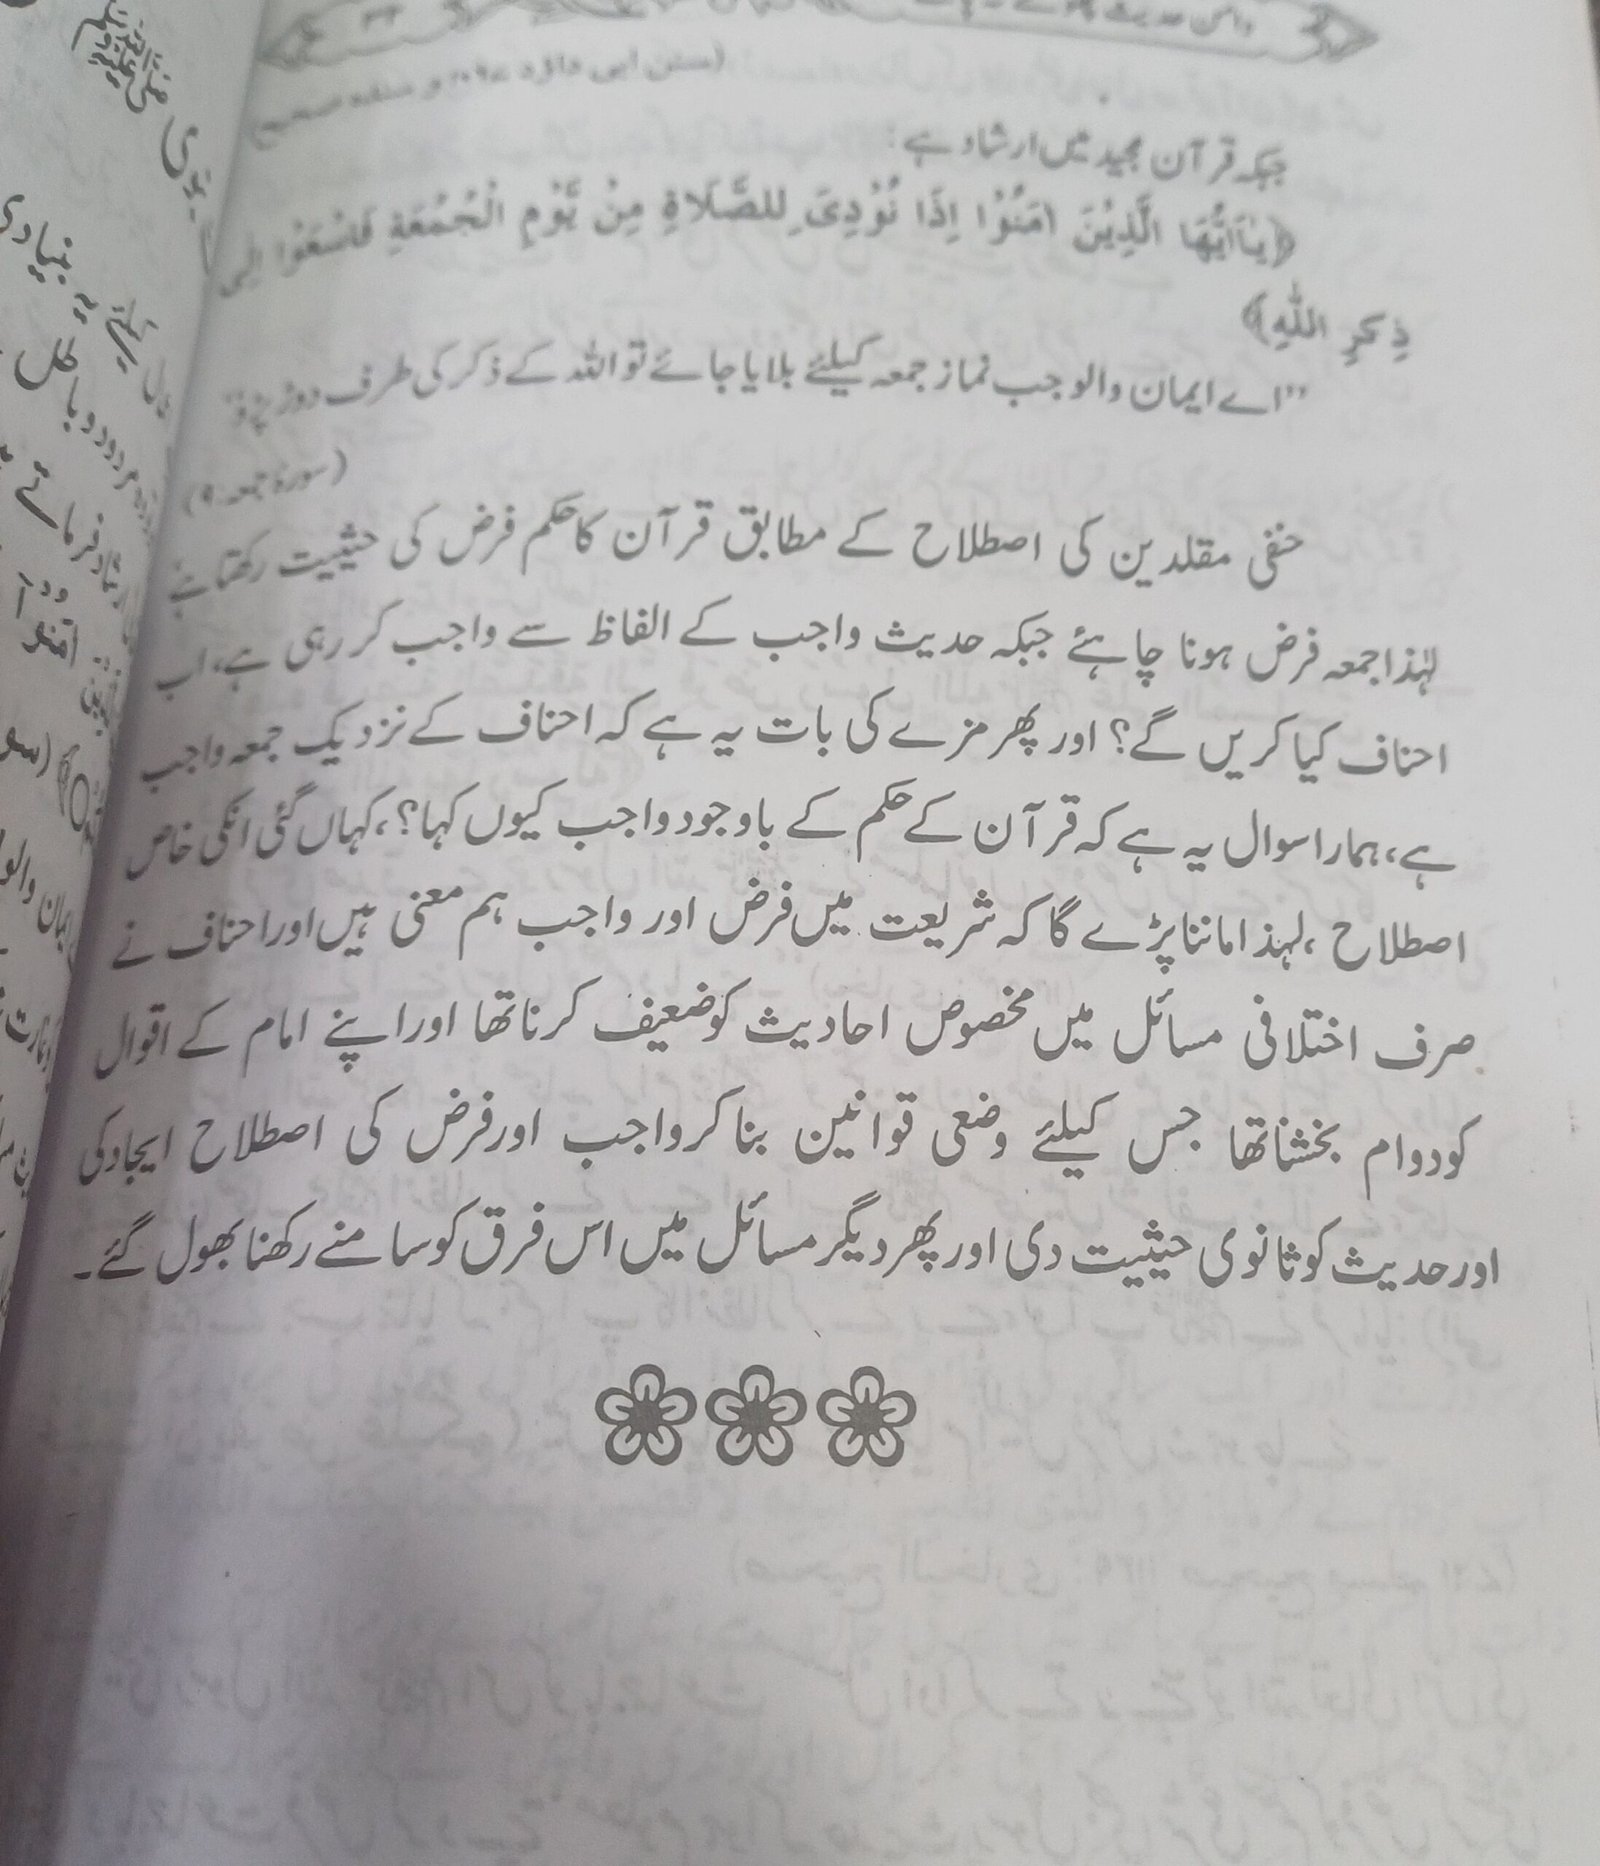 (سنن ابی داؤد ۱۰۶۷ و سندہ صحیح)
جبکہ قرآن مجید میں ارشاد ہے:
﴿یٰۤاَیُّهَا الَّذِیْنَ اٰمَنُوْا اِذَا نُوْدِیَ لِلصَّلَاةِ مِنْ یَّوْمِ الْجُمُعَةِ فَاسْعَوْا اِلٰی
ذِکْرِ اللّٰهِ﴾
”اے ایمان والو جب نماز جمعہ کیلئے بلایا جائے تو اللہ کے ذکر کی طرف دوڑ پڑو“
(سورۂ جمعہ:۹)
حنفی مقلدین کی اصطلاح کے مطابق قرآن کا حکم فرض کی حیثیت رکھتا ہے
لہٰذا جمعہ فرض ہونا چاہئے جبکہ حدیث واجب کے الفاظ سے واجب کر رہی ہے، اب
احناف کیا کریں گے؟ اور پھر مزے کی بات یہ ہے کہ احناف کے نزدیک جمعہ واجب
ہے، ہمارا سوال یہ ہے کہ قرآن کے حکم کے باوجود واجب کیوں کہا؟، کہاں گئی انکی خاص
اصطلاح، لہذا ماننا پڑے گا کہ شریعت میں فرض اور واجب ہم معنی ہیں اور احناف نے
صرف اختلافی مسائل میں مخصوص احادیث کو ضعیف کرنا تھا اور اپنے امام کے اقوال
کو دوام بخشنا تھا جس کیلئے وضعی قوانین بنا کر واجب اور فرض کی اصطلاح ایجاد کی
اور حدیث کو ثانوی حیثیت دی اور پھر دیگر مسائل میں اس فرق کو سامنے رکھنا بھول گئے۔